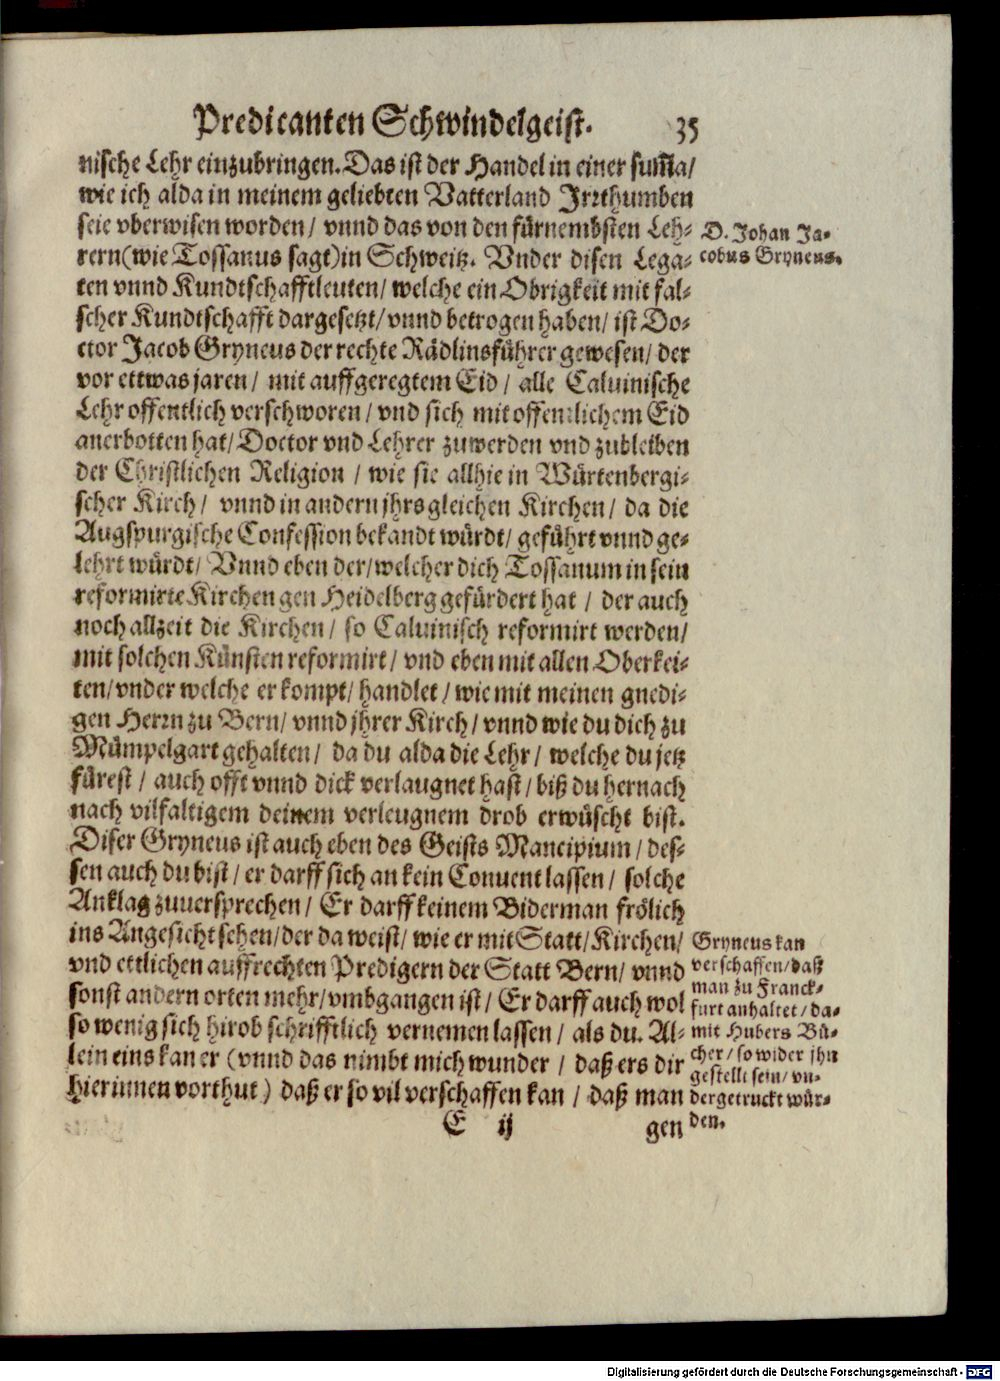 Predicanten Schwindelgeist. 35
nische Lehr einzubringen. Das ist der Handel in einer sum̃a/
wie ich alda in meinem geliebten Vatterland Irrthumben
seie vberwisen worden/ vnnd das von den fürnembsten Leh-
rern (wie Tossanus sagt) in Schweitz. Vnder disen Lega-
ten vnnd Kundtschafftleuten/ welche ein Obrigkeit mit fal-
scher Kundtschafft dargesetzt/ vnnd betrogen haben/ ist Do-
ctor Jacob Gryneus der rechte Rädlinsführer gewesen/ der
vor ettwas jaren/ mit auffgeregtem Eid/ alle Caluinische
Lehr offentlich verschworen/ vnd sich mit offentlichem Eid
anerbotten hat/ Doctor vnd Lehrer zuwerden vnd zubleiben
der Christlichen Religion/ wie sie allhie in Würtenbergi-
scher Kirch/ vnnd in andern jhrs gleichen Kirchen/ da die
Augspurgische Confession bekandt würdt/ geführt vnnd ge-
lehrt würdt/ Vnnd eben der/ welcher dich Tossanum in sein
reformirte Kirchen gen Heidelberg gefürdert hat/ der auch
noch allzeit die Kirchen/ so Caluinisch reformirt werden/
mit solchen Künsten reformirt/ vnd eben mit allen Oberkei-
ten/ vnder welche er kompt/ handlet/ wie mit meinen gnedi-
gen Herrn zu Bern/ vnnd jhrer Kirch/ vnnd wie du dich zu
Mümpelgart gehalten/ da du alda die Lehr/ welche du jetz
fürest/ auch offt vnnd dick verlaugnet hast/ biß du hernach
nach vilfaltigem deinem verleugnem drob erwüscht bist.
Diser Gryneus ist auch eben des Geists Mancipium/ des-
sen auch du bist/ er darff sich an kein Conuent lassen/ solche
Anklag zuuersprechen/ Er darff keinem Biderman frölich
ins Angesicht sehen/ der da weist/ wie er mit Statt/ Kirchen/
vnd ettlichen auffrechten Predigern der Statt Bern/ vnnd
sonst andern orten mehr/ vmbgangen ist/ Er darff auch wol
so wenig sich hirob schrifftlich vernemen lassen/ als du. Al-
lein eins kan er (vnnd das nimbt mich wunder/ daß ers dir
hierinnen vorthut) daß er so vil verschaffen kan/ daß man
E ij gen
D. Johan Ja-
cobus Gryneus.
Gryneus kan
verschaffen/ daß
man zu Franck-
furt anhaltet/ da-
mit Hubers Bü-
cher/ so wider jhn
gestellt sein/ vn-
dergetruckt wür-
den.
Digitalisierung gefördert durch die Deutsche Forschungsgemeinschaft - DFG